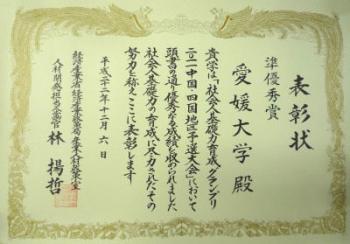 表彰状
準優秀賞
愛媛大学 殿
貴学は「社会人基礎力育成グランプリ
二〇一一中国・四国地区予選大会」において
頭書の通り優秀なる成績を収められました
社会人基礎力の育成に尽力されたその
努力を称えここに表彰します
平成二十二年十二月六日
経済産業省経済産業政策局産業人材政策室
人材開発担当企画官
林 揚哲